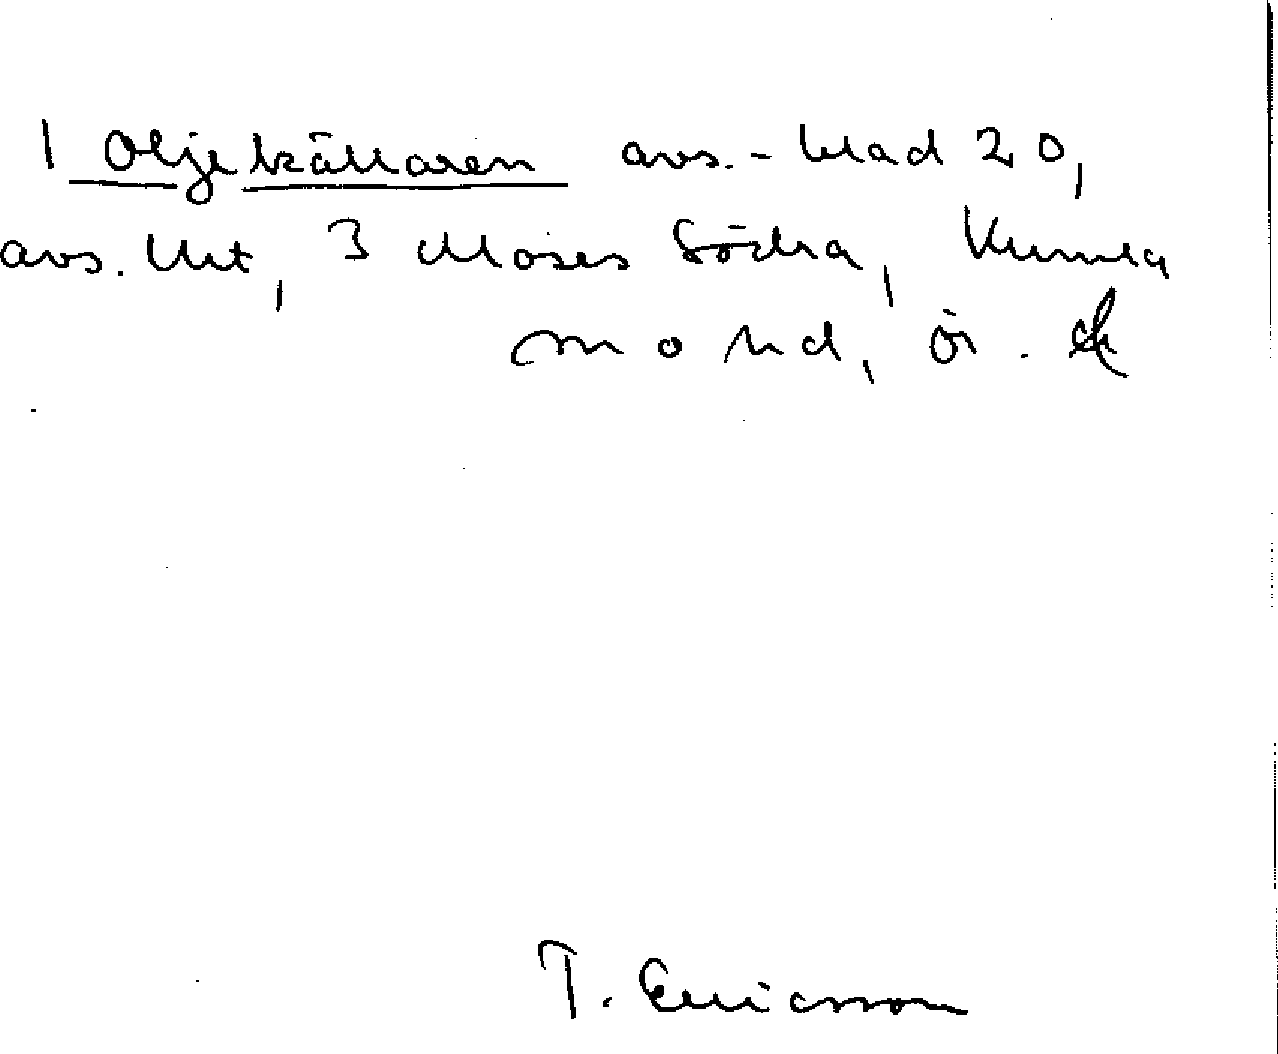 1 Oljekällaren avs.-blad 20,
avs. Urt, 3 Mosås Södra, Kumla
m o hd, Ör.
T. Ericsson